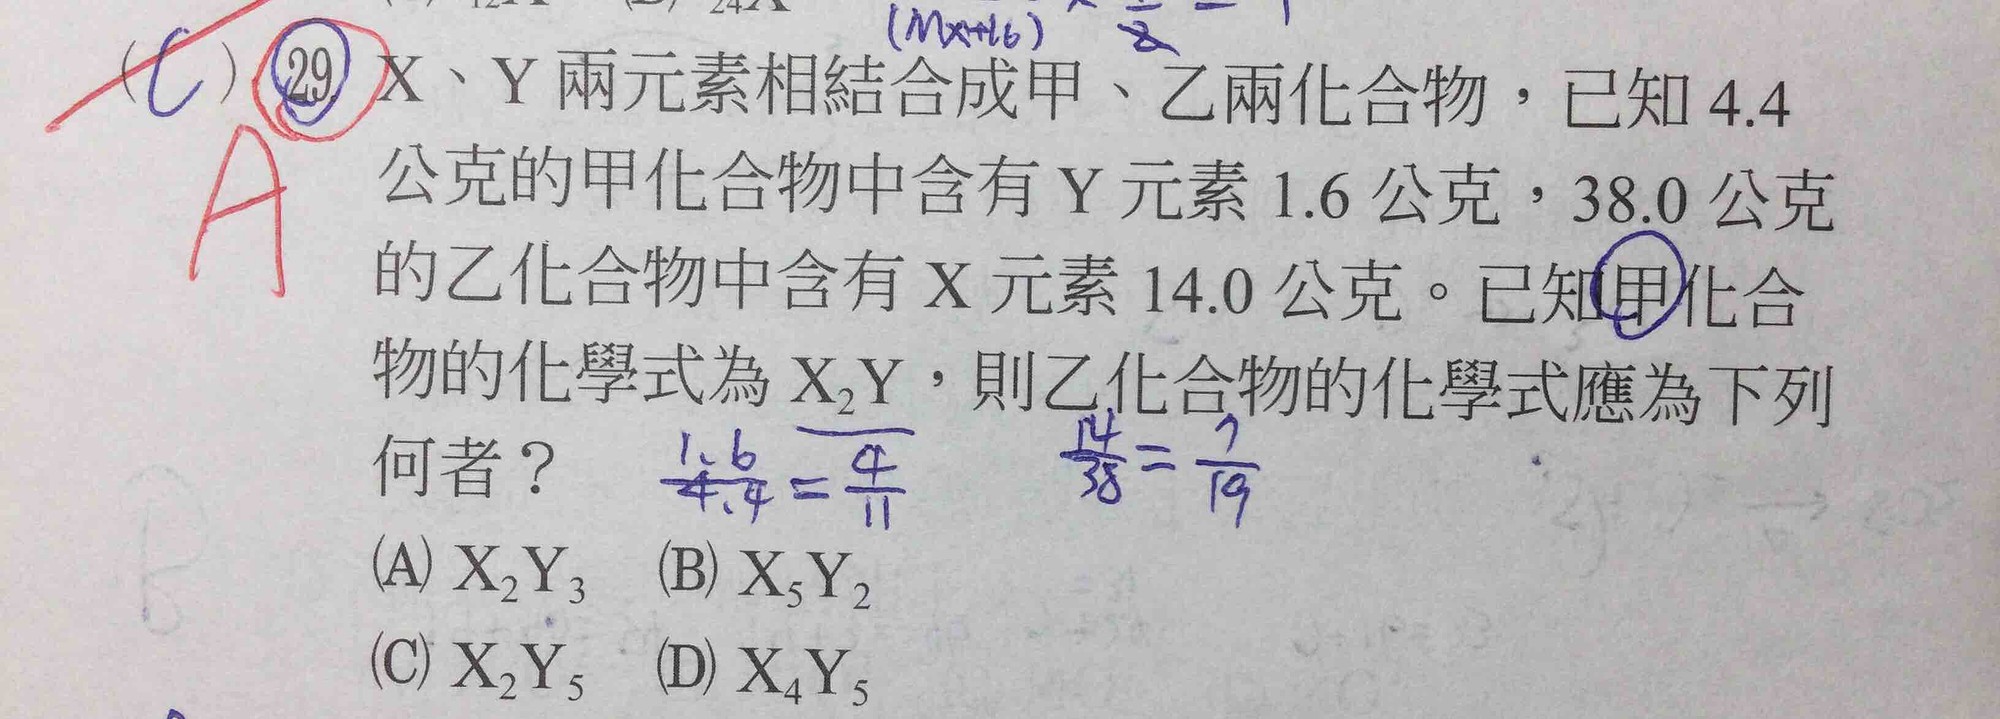 (Mx+16)
(C) 29 X、Y 兩元素相結合成甲、乙兩化合物，已知 4.4
A
公克的甲化合物中含有 Y 元素 1.6 公克，38.0 公克
的乙化合物中含有 X 元素 14.0 公克。已知甲化合
物的化學式為 X₂Y，則乙化合物的化學式應為下列
何者？ 1.6/4.4 = 4/11 14/38 = 7/19
(A) X₂Y₃ (B) X₅Y₂
(C) X₂Y₅ (D) X₄Y₅